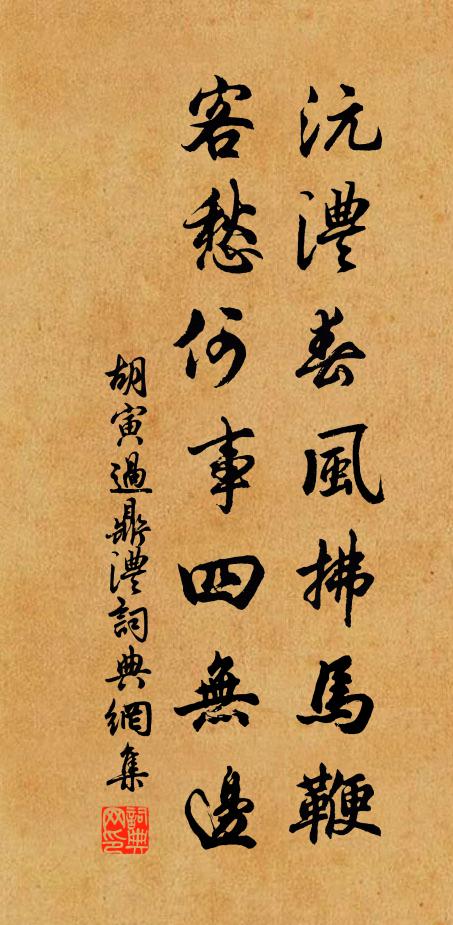 沅澧春風拂馬鞭
客愁何事四無邊
胡寅過鼎澧詞典網集
詞典網印